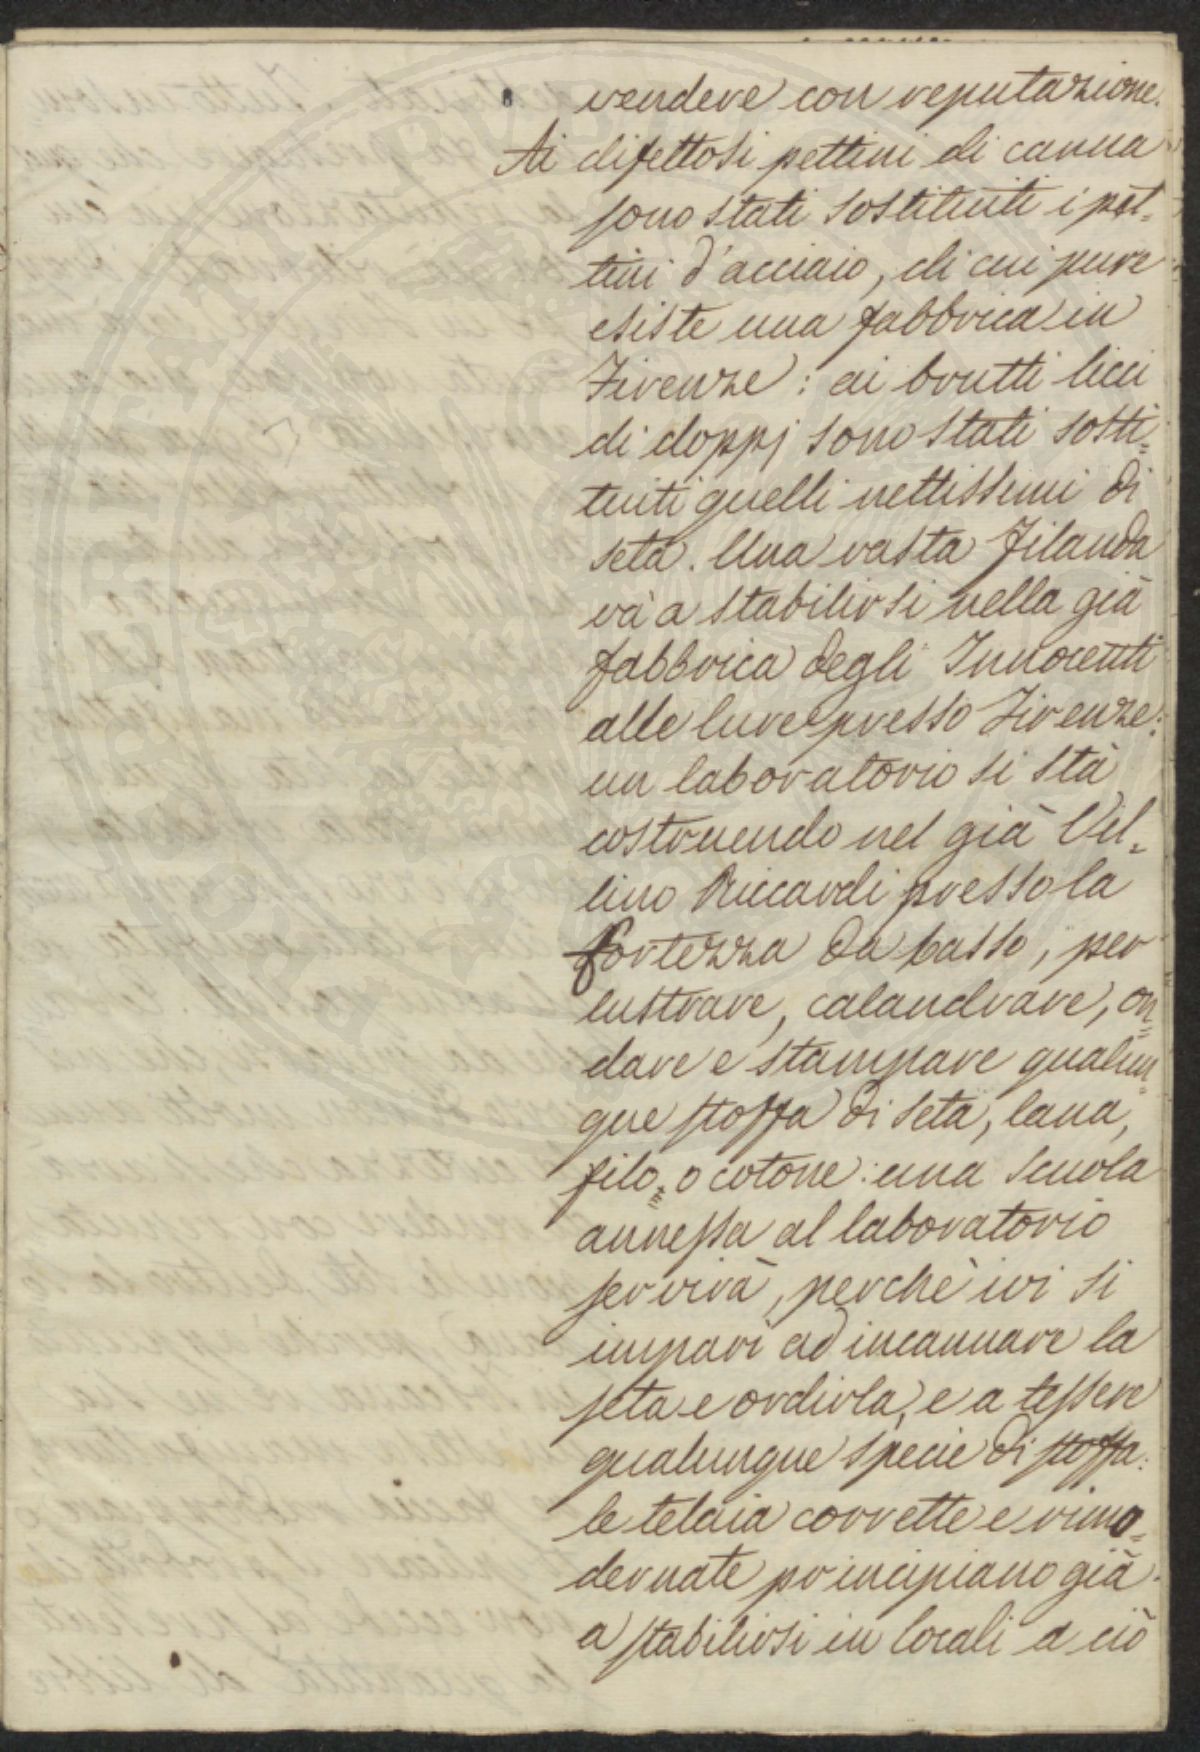 vendere con reputazione.
Ai difettosi pettini di canna
sono stati sostituiti i pet=
tini d'acciaio, di cui pure
esiste una fabbrica in
Firenze: ai brutti licci
di doppj sono stati sosti=
tuiti quelli nettissimi di
seta. Una vasta Filanda
và a stabilirsi nella già
fabbrica degli Innocenti
alle lure presso Firenze:
un laboratorio si stà
costruendo nel già Vil=
lino Riccardi presso la
Fortezza da basso, per
lustrare, calandrare, on=
dare e stampare qualun=
que stoffa di seta, lana,
filo, o cotone: una scuola
annessa al laboratorio
servirà, perchè ivi si
impari ad incannare la
seta e ordirla, e a tessere
qualunque specie di stoffa:
le telaia corrette e rimo=
dernate principiano già
a stabilirsi in locali a ciò